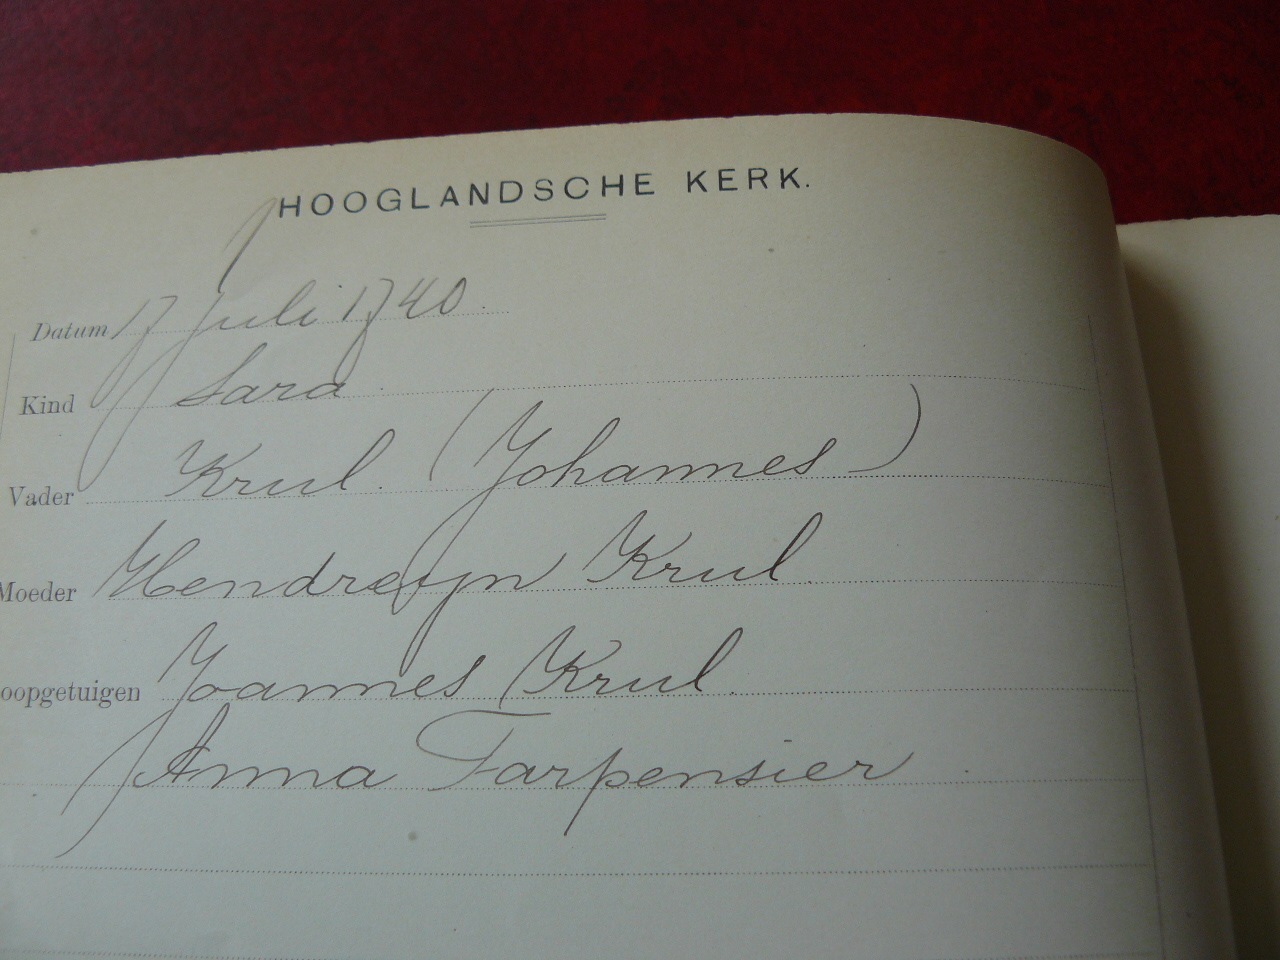 HOOGLANDSCHE KERK.
Datum 17 Juli 1740.
Kind Sara
Vader Krul. (Johannes)
Moeder Hendreyn Krul.
oopgetuigen Joannes Krul.
Anna Tarpensier